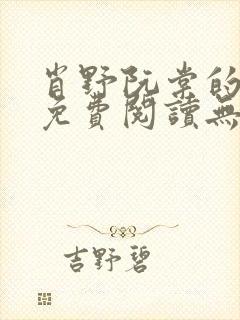 肖野阮棠的
免費閱讀無
吉野碧